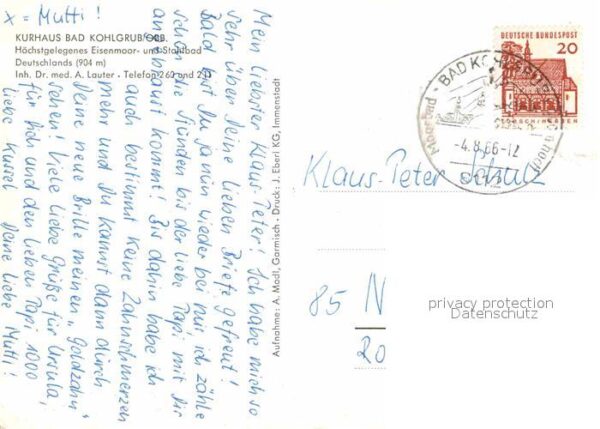 x = Mutti!
KURHAUS BAD KOHLGRUB/OBB.
Höchstgelegenes Eisenmoor- und Stahlbad
Deutschlands (904 m)
Inh. Dr. med. A. Lauter - Telefon 260 und 211
Mein liebster Klaus-Peter! Ich habe mich so
sehr über Deine lieben Briefe gefreut!
Bald bist Du ja nun wieder bei mir, ich zähle
schon die Stunden bis der liebe Papi mit Dir
angebraust kommt! Bis dahin habe ich
auch bestimmt keine Zahnschmerzen
mehr und Du kannst dann durch
Deine neue Brille meinen „Goldzahn"
sehen! Viele liebe Grüße für Ursula,
für Dich und den lieben Papi 1000
liebe Kusel Deine liebe Mutti!
Aufnahme: A. Madl, Garmisch - Druck: J. Eberl KG, Immenstadt
DEUTSCHE BUNDESPOST
20
LORSCH/HESSEN
BAD KOHLGRUB
Moorbad
-4.8.66-12
Klaus-Peter Schulz
85 N
20
privacy protection
Datenschutz